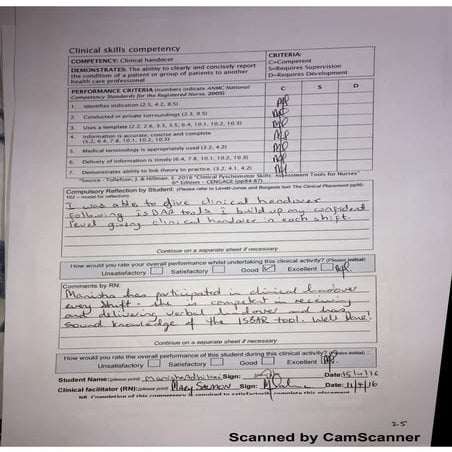 Clinical skills competency
COMPETENCY: Clinical handover
CRITERIA:
C=Competent
S=Requires Supervision
D=Requires Development
DEMONSTRATES: The ability to clearly and concisely report
the condition of a patient or group of patients to another
health care professional
PERFORMANCE CRITERIA (numbers indicate ANMC National
Competency Standards for the Registered Nurse, 2005)
C S D
1. Identifies indication (2.5, 4.2, 9.5)
2. Conducted in private surroundings (2.3, 9.5)
3. Uses a template (2.2, 2.6, 3.3, 3.5, 6.4, 10.1, 10.2, 10.3)
4. Information is accurate, concise and complete
(5.2, 6.4, 7.8, 10.1, 10.2, 10.3)
5. Medical terminology is appropriately used (3.2, 4.2)
6. Delivery of information is timely (6.4, 7.8, 10.1, 10.2, 10.3)
7. Demonstrates ability to link theory to practice (3.2, 4.1, 4.2)
"Source - Tollefson, J. & Hillman, E. 2016 "Clinical Psychomotor Skills: Assessment Tools for Nurses"
6th Edition - CENGAGE (pp84-87).
Compulsory Reflection by Student: (Please refer to Levett-Jones and Burgeois text The Clinical Placement pp95-
102 - model for reflection)
I was able to give clinical handover
following ISBAR tools I build up my confident
level giving clinical handover in each shift.
Continue on a separate sheet if necessary
How would you rate your overall performance whilst undertaking this clinical activity? (Please initial)
Unsatisfactory Satisfactory Good Excellent
Comments by RN:
Manisha has participated in clinical handover
every shift. She is competent in receiving
and delivering verbal handover and has
sound knowledge of the ISBAR tool. Well Done!
Continue on a separate sheet if necessary
How would you rate the overall performance of this student during this clinical activity? (Please initial)
Unsatisfactory Satisfactory Good Excellent
Student Name: (please print) Manisha Sign: Date: 15/4/16
Clinical facilitator (RN): (please print) MARY SALMON Sign: Date:
NB. Completion of this competency is required to satisfactorily complete this placement
25
Scanned by CamScanner